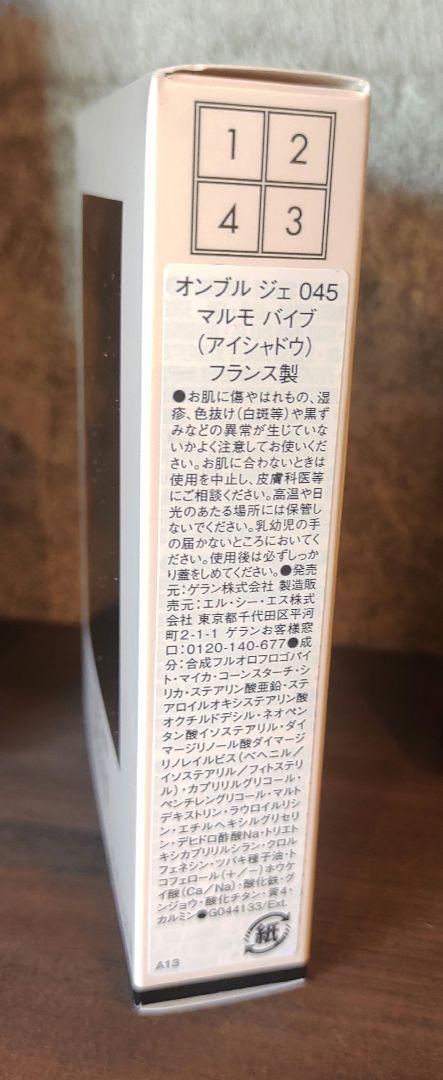 1 2
4 3
オンブル ジェ 045
マルモ バイブ
(アイシャドウ)
フランス製
●お肌に傷やはれもの、湿
疹、色抜け(白斑等)や黒ず
みなどの異常が生じていな
いかよく注意してお使いくだ
さい。お肌に合わないときは
使用を中止し、皮膚科医等
にご相談ください。高温や日
光のあたる場所には保管し
ないでください。乳幼児の手
の届かないところにおいてく
ださい。使用後は必ずしっか
り蓋をしめてください。●発売
元:ゲラン株式会社 製造販
売元:エル・シー・エス株式
会社 東京都千代田区平河
町2-1-1 ゲランお客様窓
口:0120-140-677●成
分:合成フルオロフロゴパイ
ト・マイカ・コーンスターチ・シ
リカ・ステアリン酸亜鉛・ステ
アロイルオキシステアリン酸
オクチルドデシル・ネオペン
タン酸イソステアリル・ダイ
マージリノール酸ダイマージ
リノレイルビス(ベヘニル/
イソステアリル/フィトステリ
ル)・カプリリルグリコール・
ペンチレングリコール・マルト
デキストリン・ラウロイルリシ
ン・エチルヘキシルグリセリ
ン・デヒドロ酢酸Na・トリエト
キシカプリリルシラン・クロル
フェネシン・ツバキ種子油・ト
コフェロール(+/-)ホウケ
イ酸(Ca/Na)・酸化鉄・グ
ンジョウ・酸化チタン・黄4・
カルミン●G044133/Ext.
紙
A13